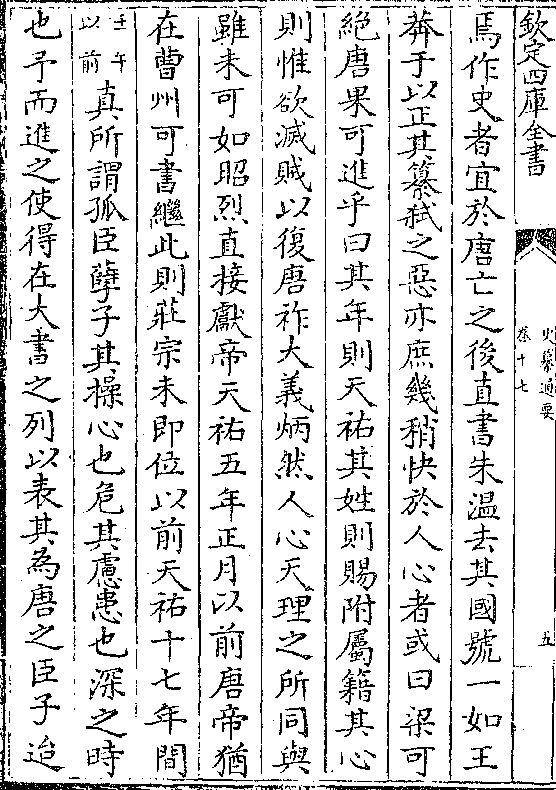 欽定四庫全書
史纂通要
卷十七
五
焉作史者宜於唐亡之後直書朱温去其國號一如王
莽于以正其簒弑之惡亦庶幾稍快於人心者或曰梁可
絶唐果可進乎曰其年則天祐其姓則賜附屬籍其心
則惟欲滅賊以復唐祚大義炳然人心天理之所同與
雖未可如昭烈直接獻帝天祐五年正月以前唐帝猶
在曹州可書繼此則莊宗未即位以前天祐十七年間
壬午
以前
真所謂孤臣孽子其操心也危其慮患也深之時
也予而進之使得在大書之列以表其為唐之臣子迨